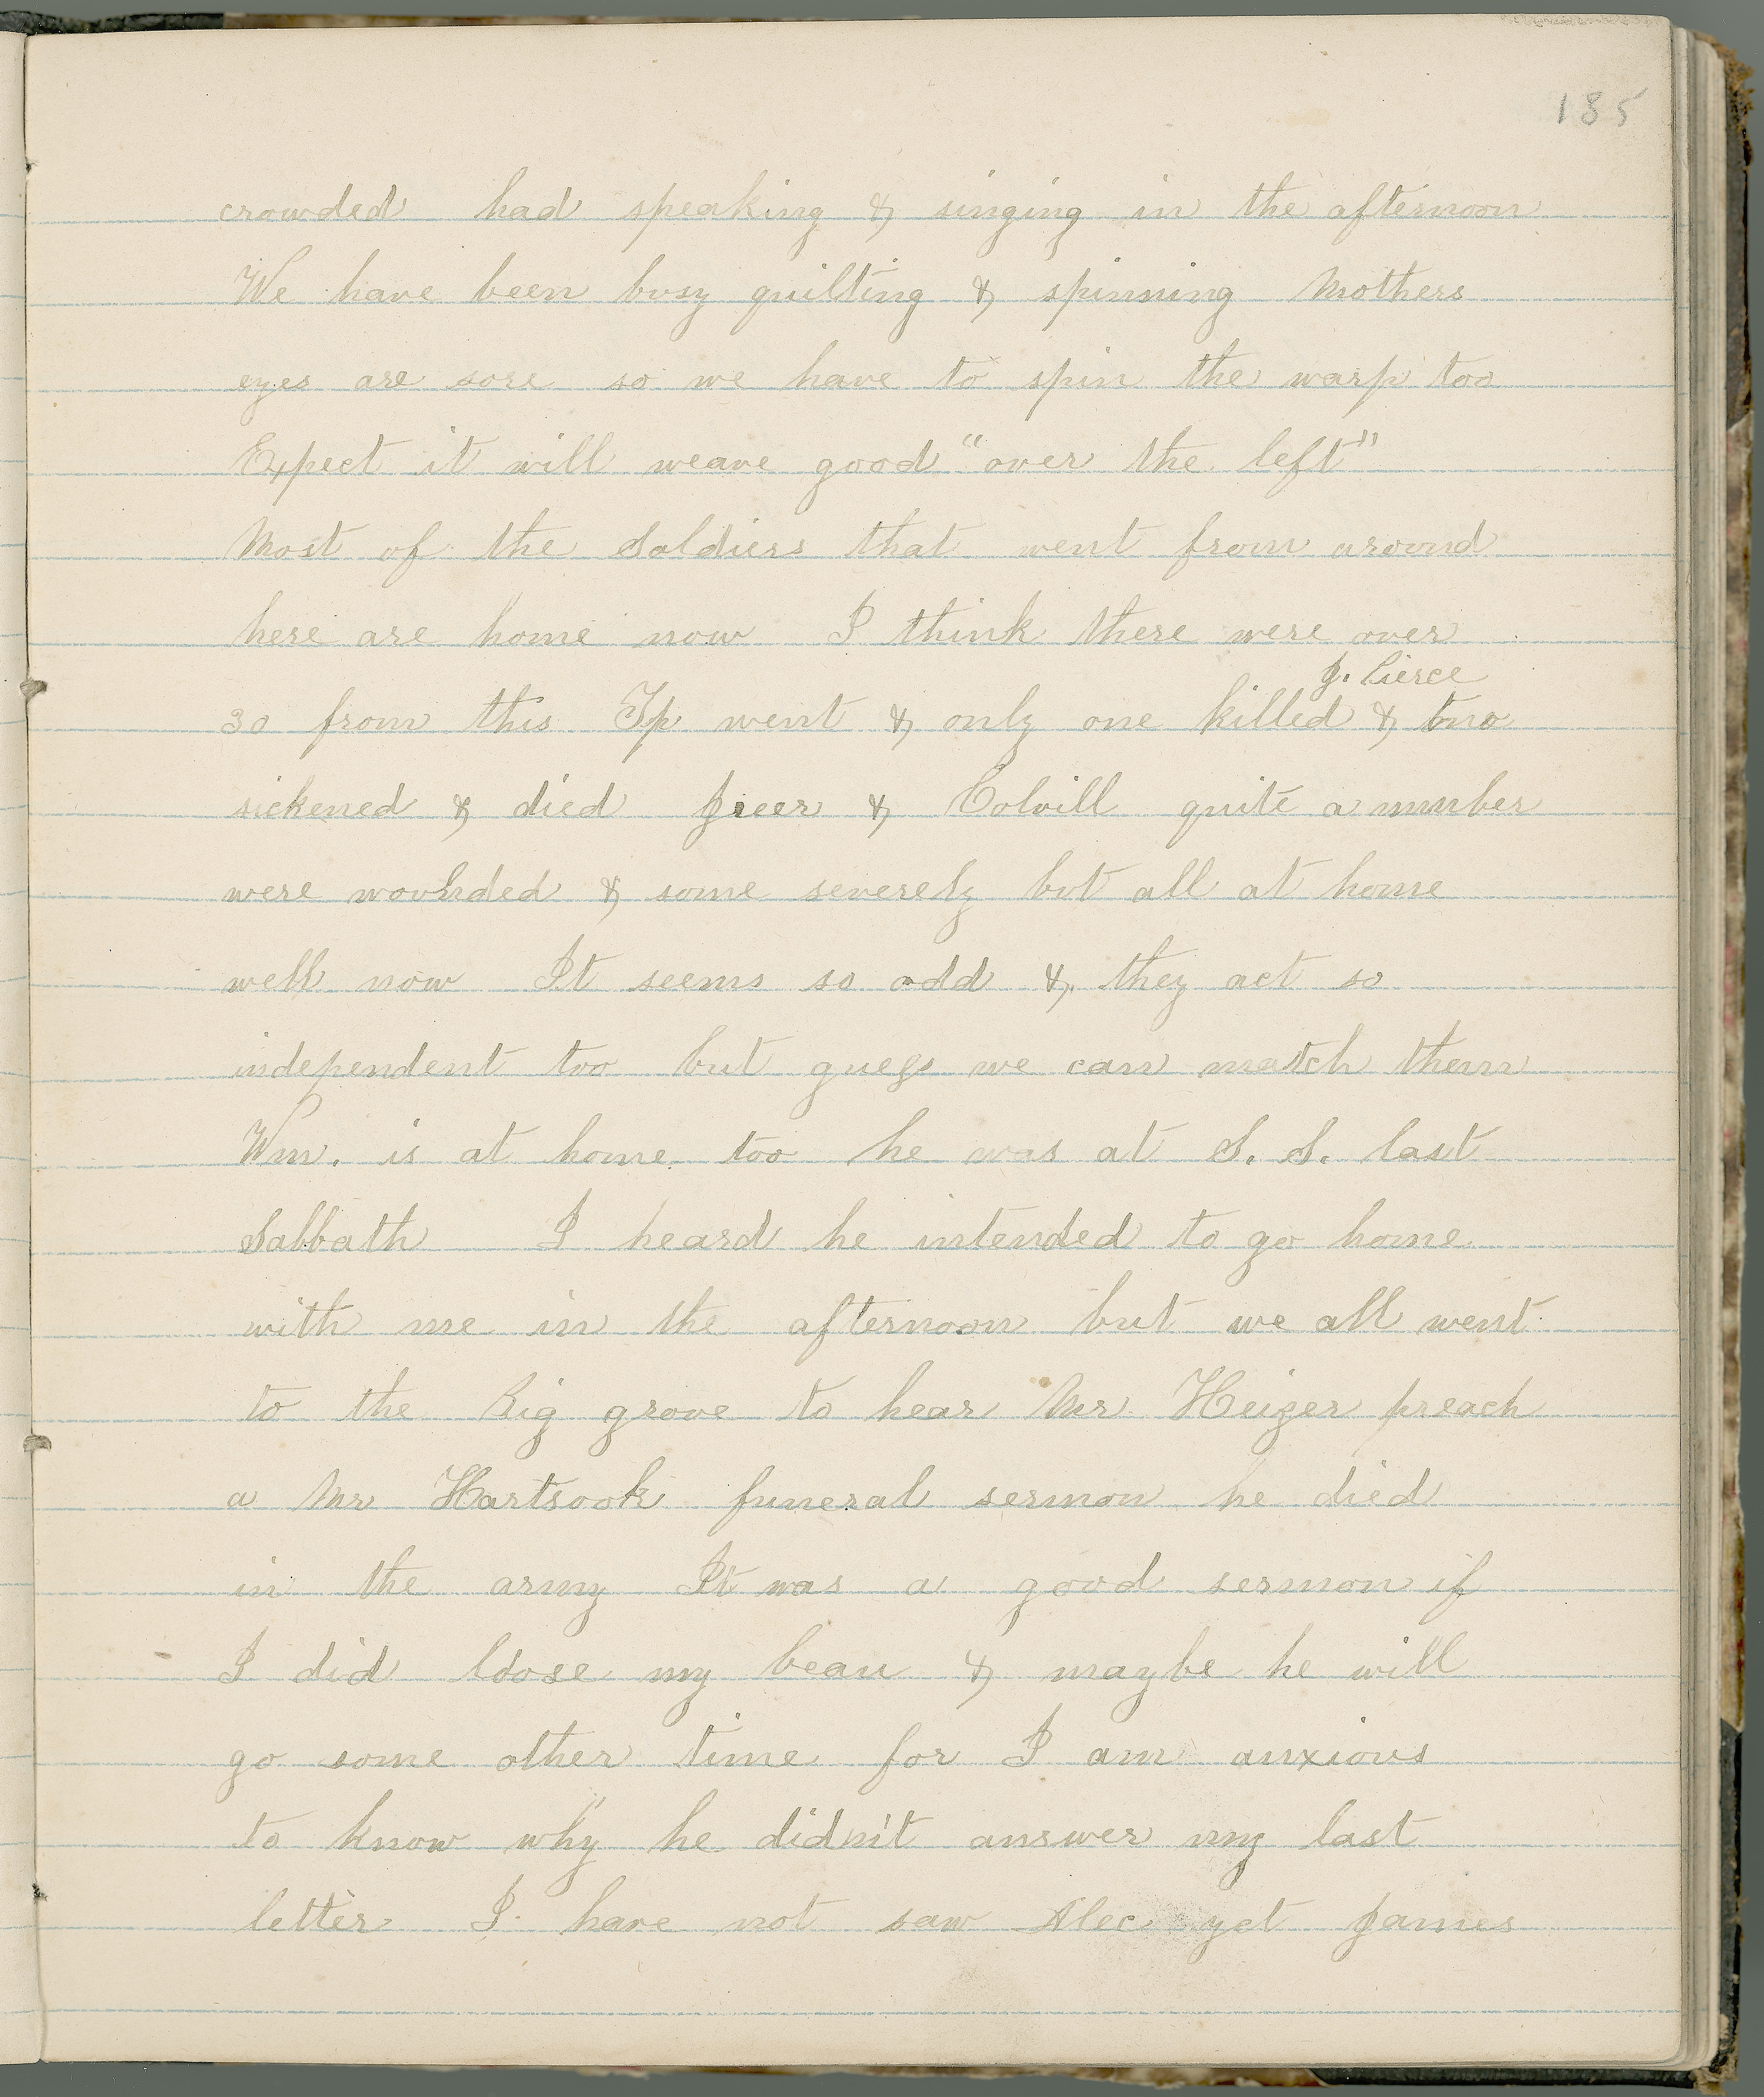 185
crowded had speaking & singing in the afternoon
We have been busy quilting & spinning Mothers
eyes are sore so we have to spin the warp too
Expect it will weave good "over the left"
Most of the Soldiers that went from around
here are home now I think there were over
J. Pierce
30 from this Tp went & only one killed & two
sickened & died & Colvill quite a number
were wounded & some severely but all at home
well now It seems so odd & they act so
independent too but guess we can match them
Wm. is at home too he was at S. S. last
Sabbath I heard he intended to go home
with me in the afternoon but we all went
to the Big grove to hear Mr Heizer preach
a Mr Hartsook funeral sermon he died
in the army It was a good sermon if
I did loose my beau & maybe he will
go some other time for I am anxious
to know why he didn't answer my last
letter I have not saw Alec yet James